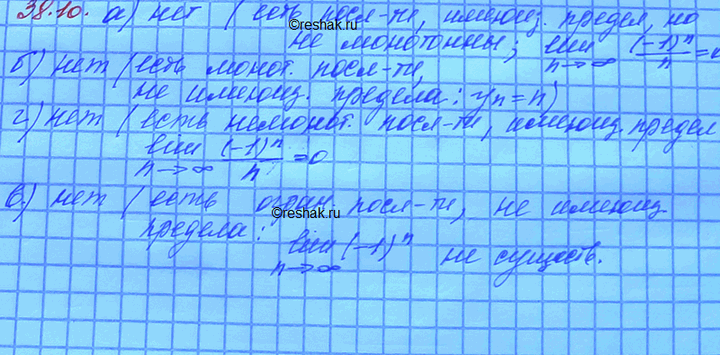 38.10. а) нет (есть посл-ти, имеющ. предел, но
не монотонны; lim n→∞ (-1)^n/n = 0
б) нет (есть монот. посл-ти,
не имеющ. предела: yn = n)
г) нет (есть немонот. посл-ти, имеющ. предел
lim n→∞ (-1)^n/n = 0
в) нет (есть огран. посл-ти, не имеющ.
предела: lim n→∞ (-1)^n не существ.
©reshak.ru
©reshak.ru